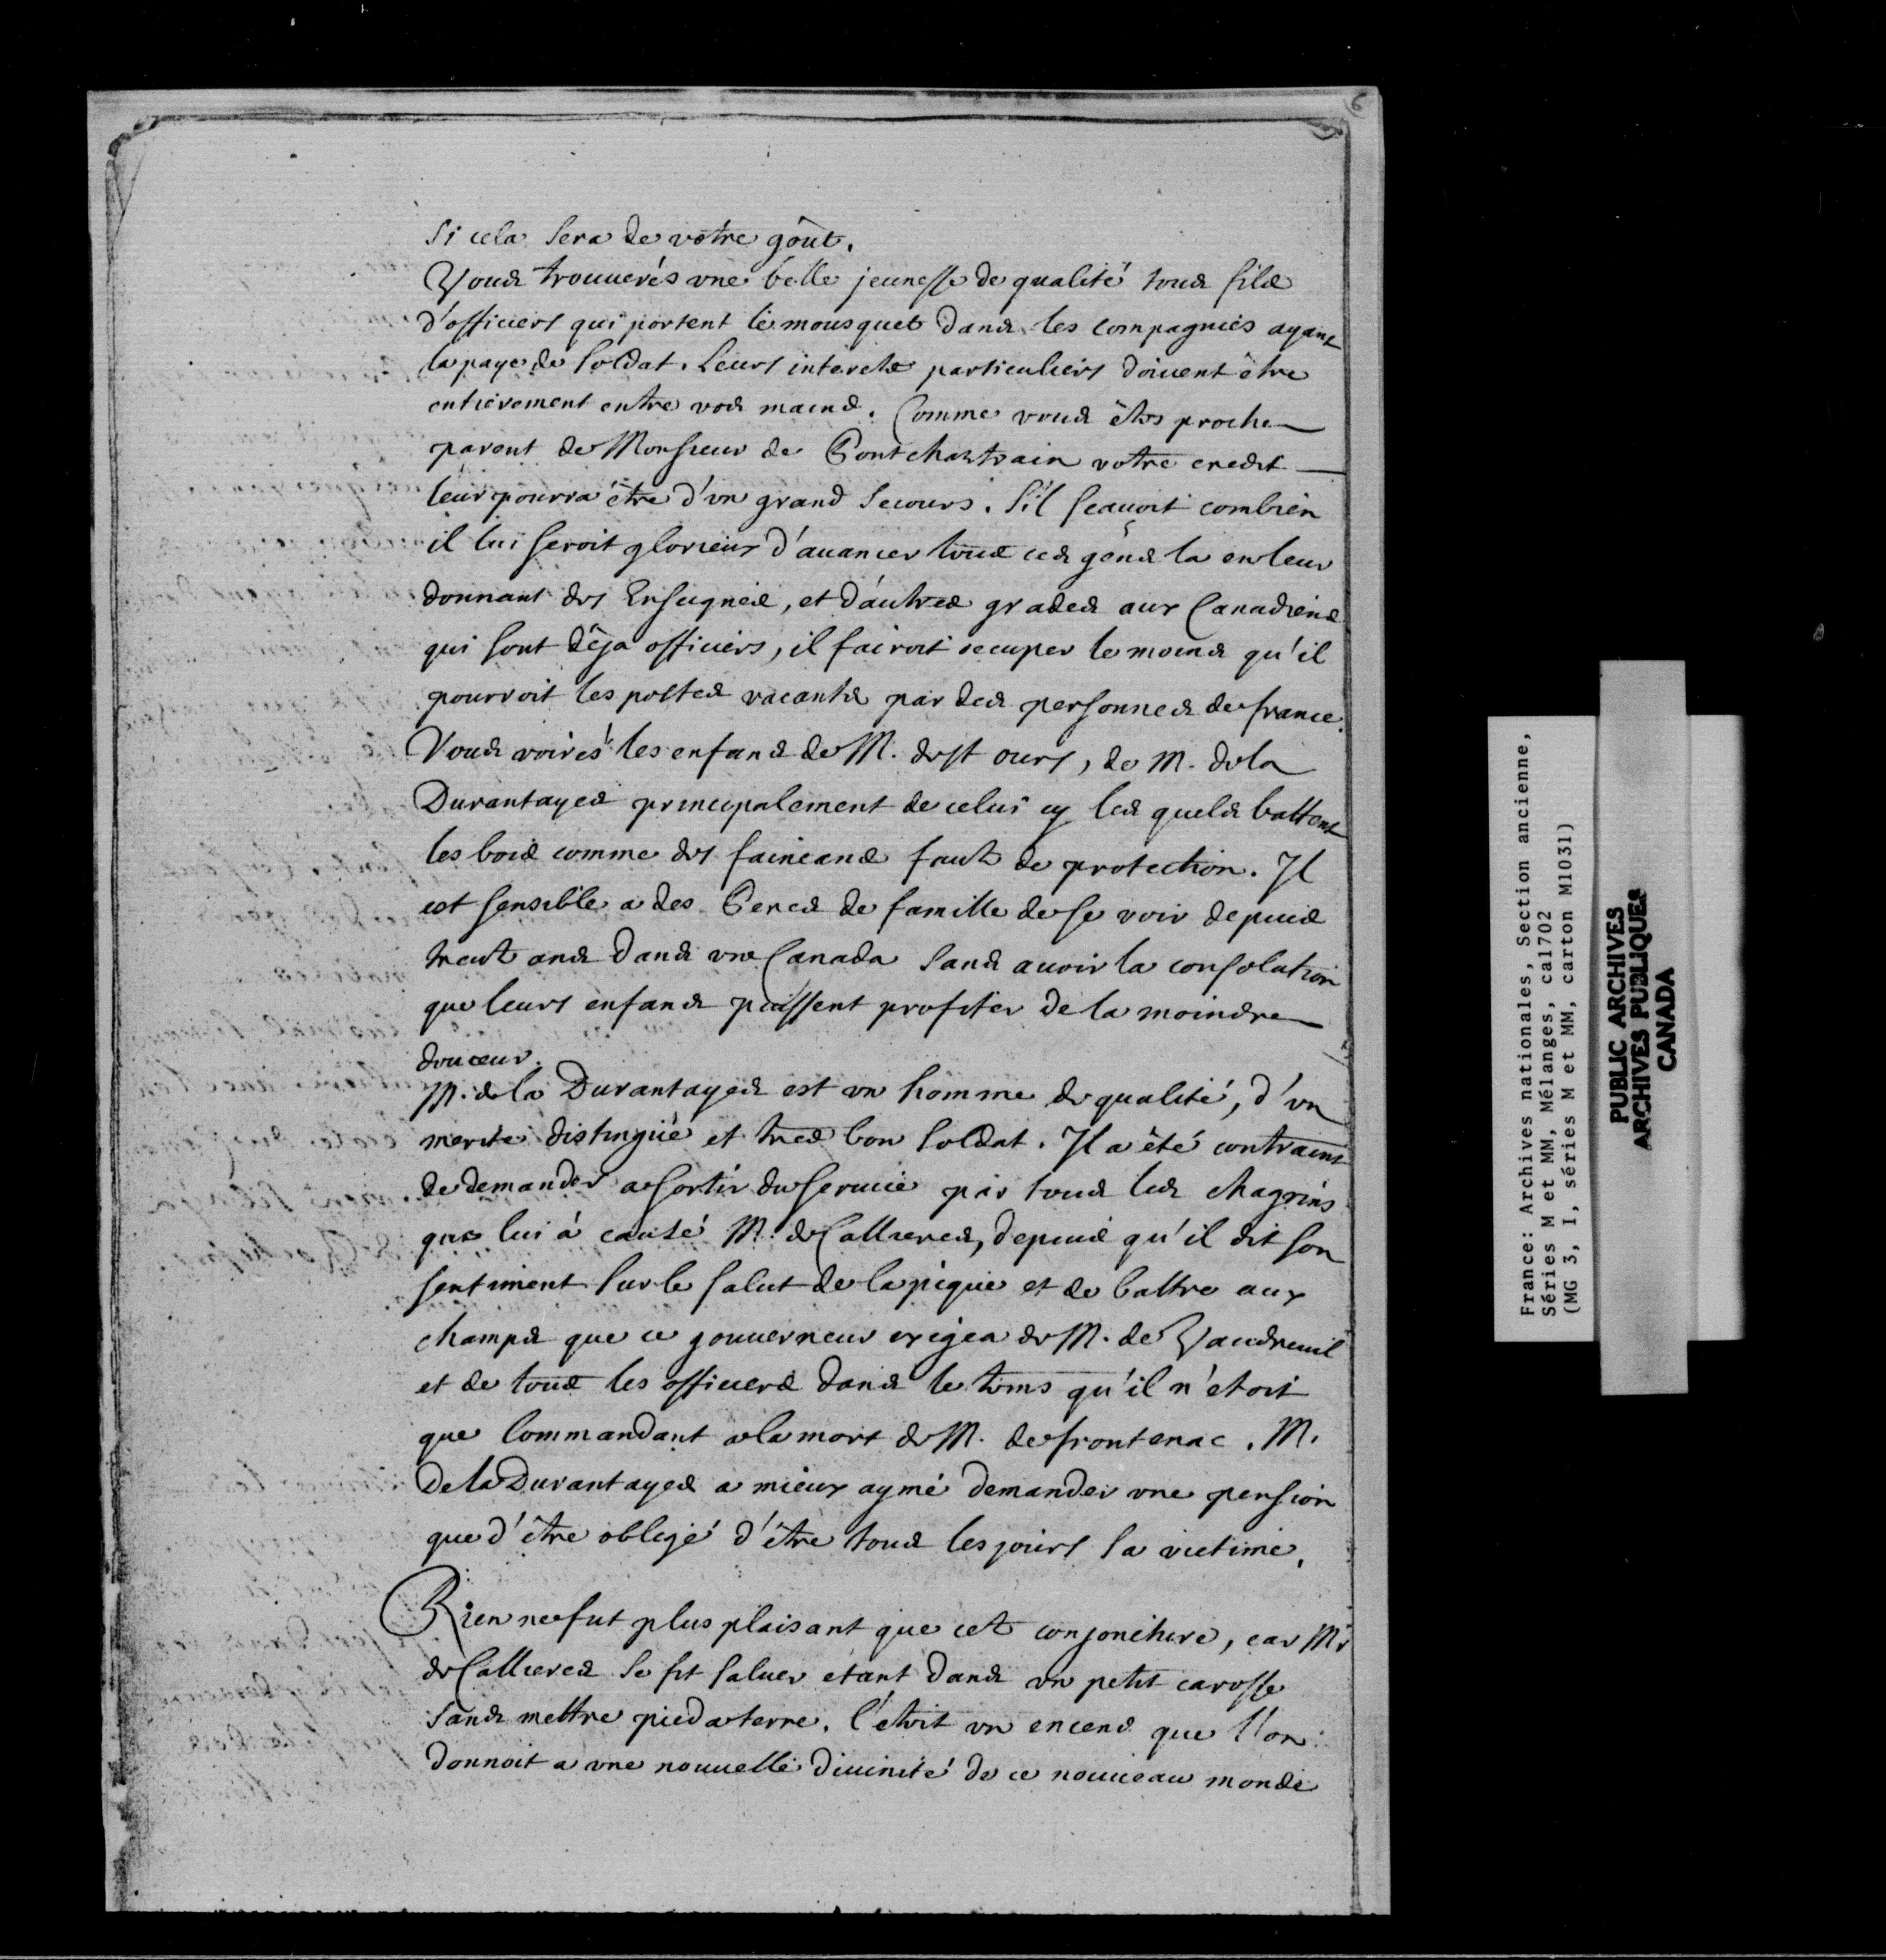 6
Si cela sera de vôtre goût.
Vous trouverés une belle jeunesse de qualité tous fils
d'officiers qui portent le mousquet dans les compagnies ayant
la paye de soldat. Leurs interets particuliers doivent être
entierement entre vos mains. Comme vous êtes proche
parent de Monsieur de Pontchartrain votre credit
leur pourra être d'un grand secours. S'il sçavoit combien
il lui seroit glorieux d'avancer tous ces gens la en leur
donnant des Enseignes, et d'autres grades aux Canadiens
qui sont déja officiers, il fairoit occuper le moins qu'il
pourroit les postes vacants par des personnes de france.
Vous voirés les enfans de M. de st ours, de M. de la
Durantayes principalement de celui cy les quels battent
les bois comme des faineans faute de protection. Il
est sensible a des Peres de famille de se voir depuis
trente ans dans un Canada sans avoir la consolation
que leurs enfans puissent profiter de la moindre
douceur.
M. de la Durantayes est un homme de qualité, d'un
merite distingüé et tres bon soldat. Il a êté contraint
de demander a sortir du service par tous les chagrins
que lui à causé M. de Callieres, depuis qu'il dit son
sentiment sur le salut de la pique et de battre aux
champs que ce gouverneur exigea de M. de Vaudreuil
et de tous les officiers dans le tems qu'il n'etoit
que Commandant a la mort de M. de frontenac. M.
De la Durantayes a mieux aymé demander une pension
que d'être obligé d'être tous les jours sa victime.
Rien ne fut plus plaisant que cette conjoncture, car Mr
de Callieres se fit saluer etant dans un petit carosse
sans mettre pied a terre. C'etoit un encens que l'on
donnoit a une nouvelle divinité de ce nouveau monde
France: Archives nationales, Section ancienne,
Séries M et MM, Mélanges, ca1702
(MG 3, I, séries M et MM, carton M1031)
PUBLIC ARCHIVES
ARCHIVES PUBLIQUES
CANADA